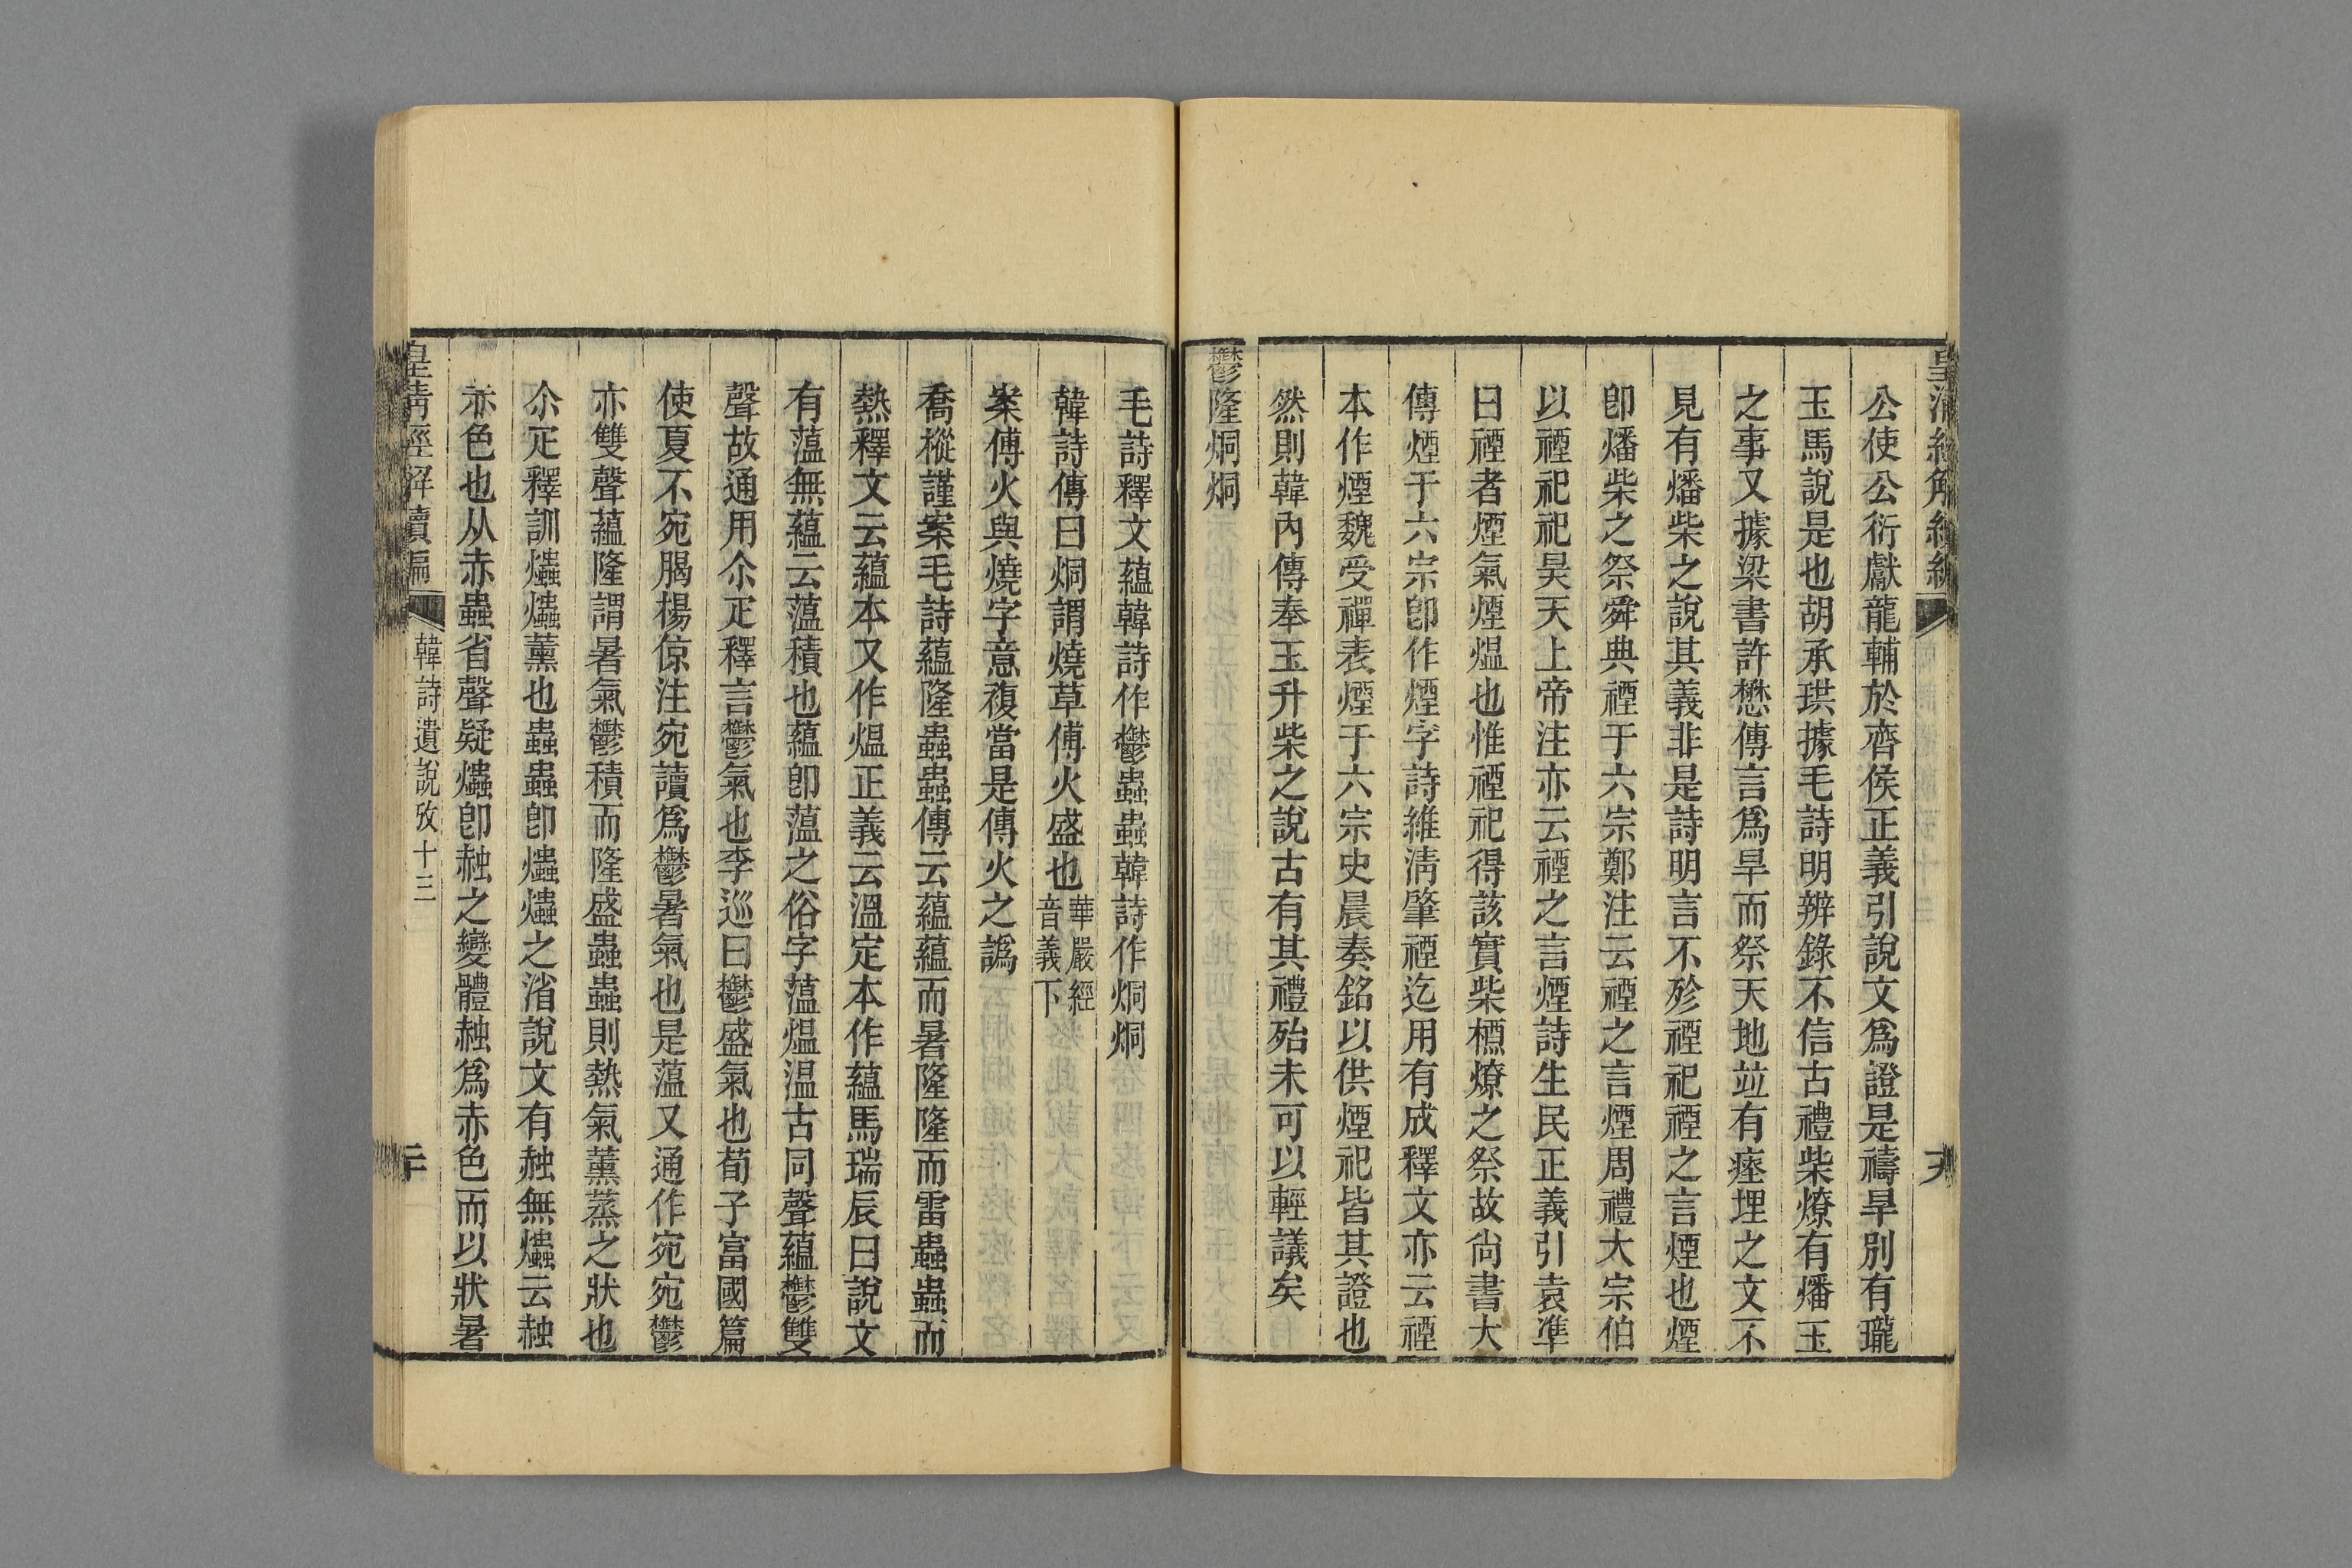 公使公衍獻龍輔於齊侯正義引說文爲證是禱旱別有瓏
玉馬說是也胡承珙據毛詩明辨錄不信古禮柴燎有燔玉
之事又據梁書許懋傳言爲旱而祭天地竝有瘞埋之文不
見有燔柴之說其義非是詩明言不殄禋祀禋之言煙也煙
卽燔柴之祭舜典禋于六宗鄭注云禋之言煙周禮大宗伯
以禋祀祀昊天上帝注亦云禋之言煙詩生民正義引袁準
曰禋者煙氣煙熅也惟禋祀得該實柴槱燎之祭故尙書大
傳煙于六宗卽作煙字詩維淸肇禋迄用有成釋文亦云禋
本作煙魏受禪表煙于六宗史晨奏銘以供煙祀皆其證也
然則韓內傳奉玉升柴之說古有其禮殆未可以輕議矣
鬱隆烔烔
毛詩釋文蘊韓詩作鬱蟲蟲韓詩作烔烔
韓詩傳曰烔謂燒草傅火盛也華嚴經音義下
案傅火與燒字意複當是傳火之譌
喬樅謹案毛詩蘊隆蟲蟲傳云蘊蘊而暑隆隆而雷蟲蟲而
熱釋文云蘊本又作熅正義云溫定本作蘊馬瑞辰曰說文
有薀無蘊云薀積也蘊卽薀之俗字薀熅温古同聲蘊鬱雙
聲故通用尒疋釋言鬱氣也李巡曰鬱盛氣也荀子富國篇
使夏不宛暍楊倞注宛讀爲鬱暑氣也是薀又通作宛宛鬱
亦雙聲蘊隆謂暑氣鬱積而隆盛蟲蟲則熱氣薰蒸之狀也
尒疋釋訓爞爞薰也蟲蟲卽爞爞之渻說文有赨無爞云赨
赤色也从赤蟲省聲疑爞卽赨之變體赨爲赤色而以狀暑
皇淸經解續編
韓詩遺說攷十三